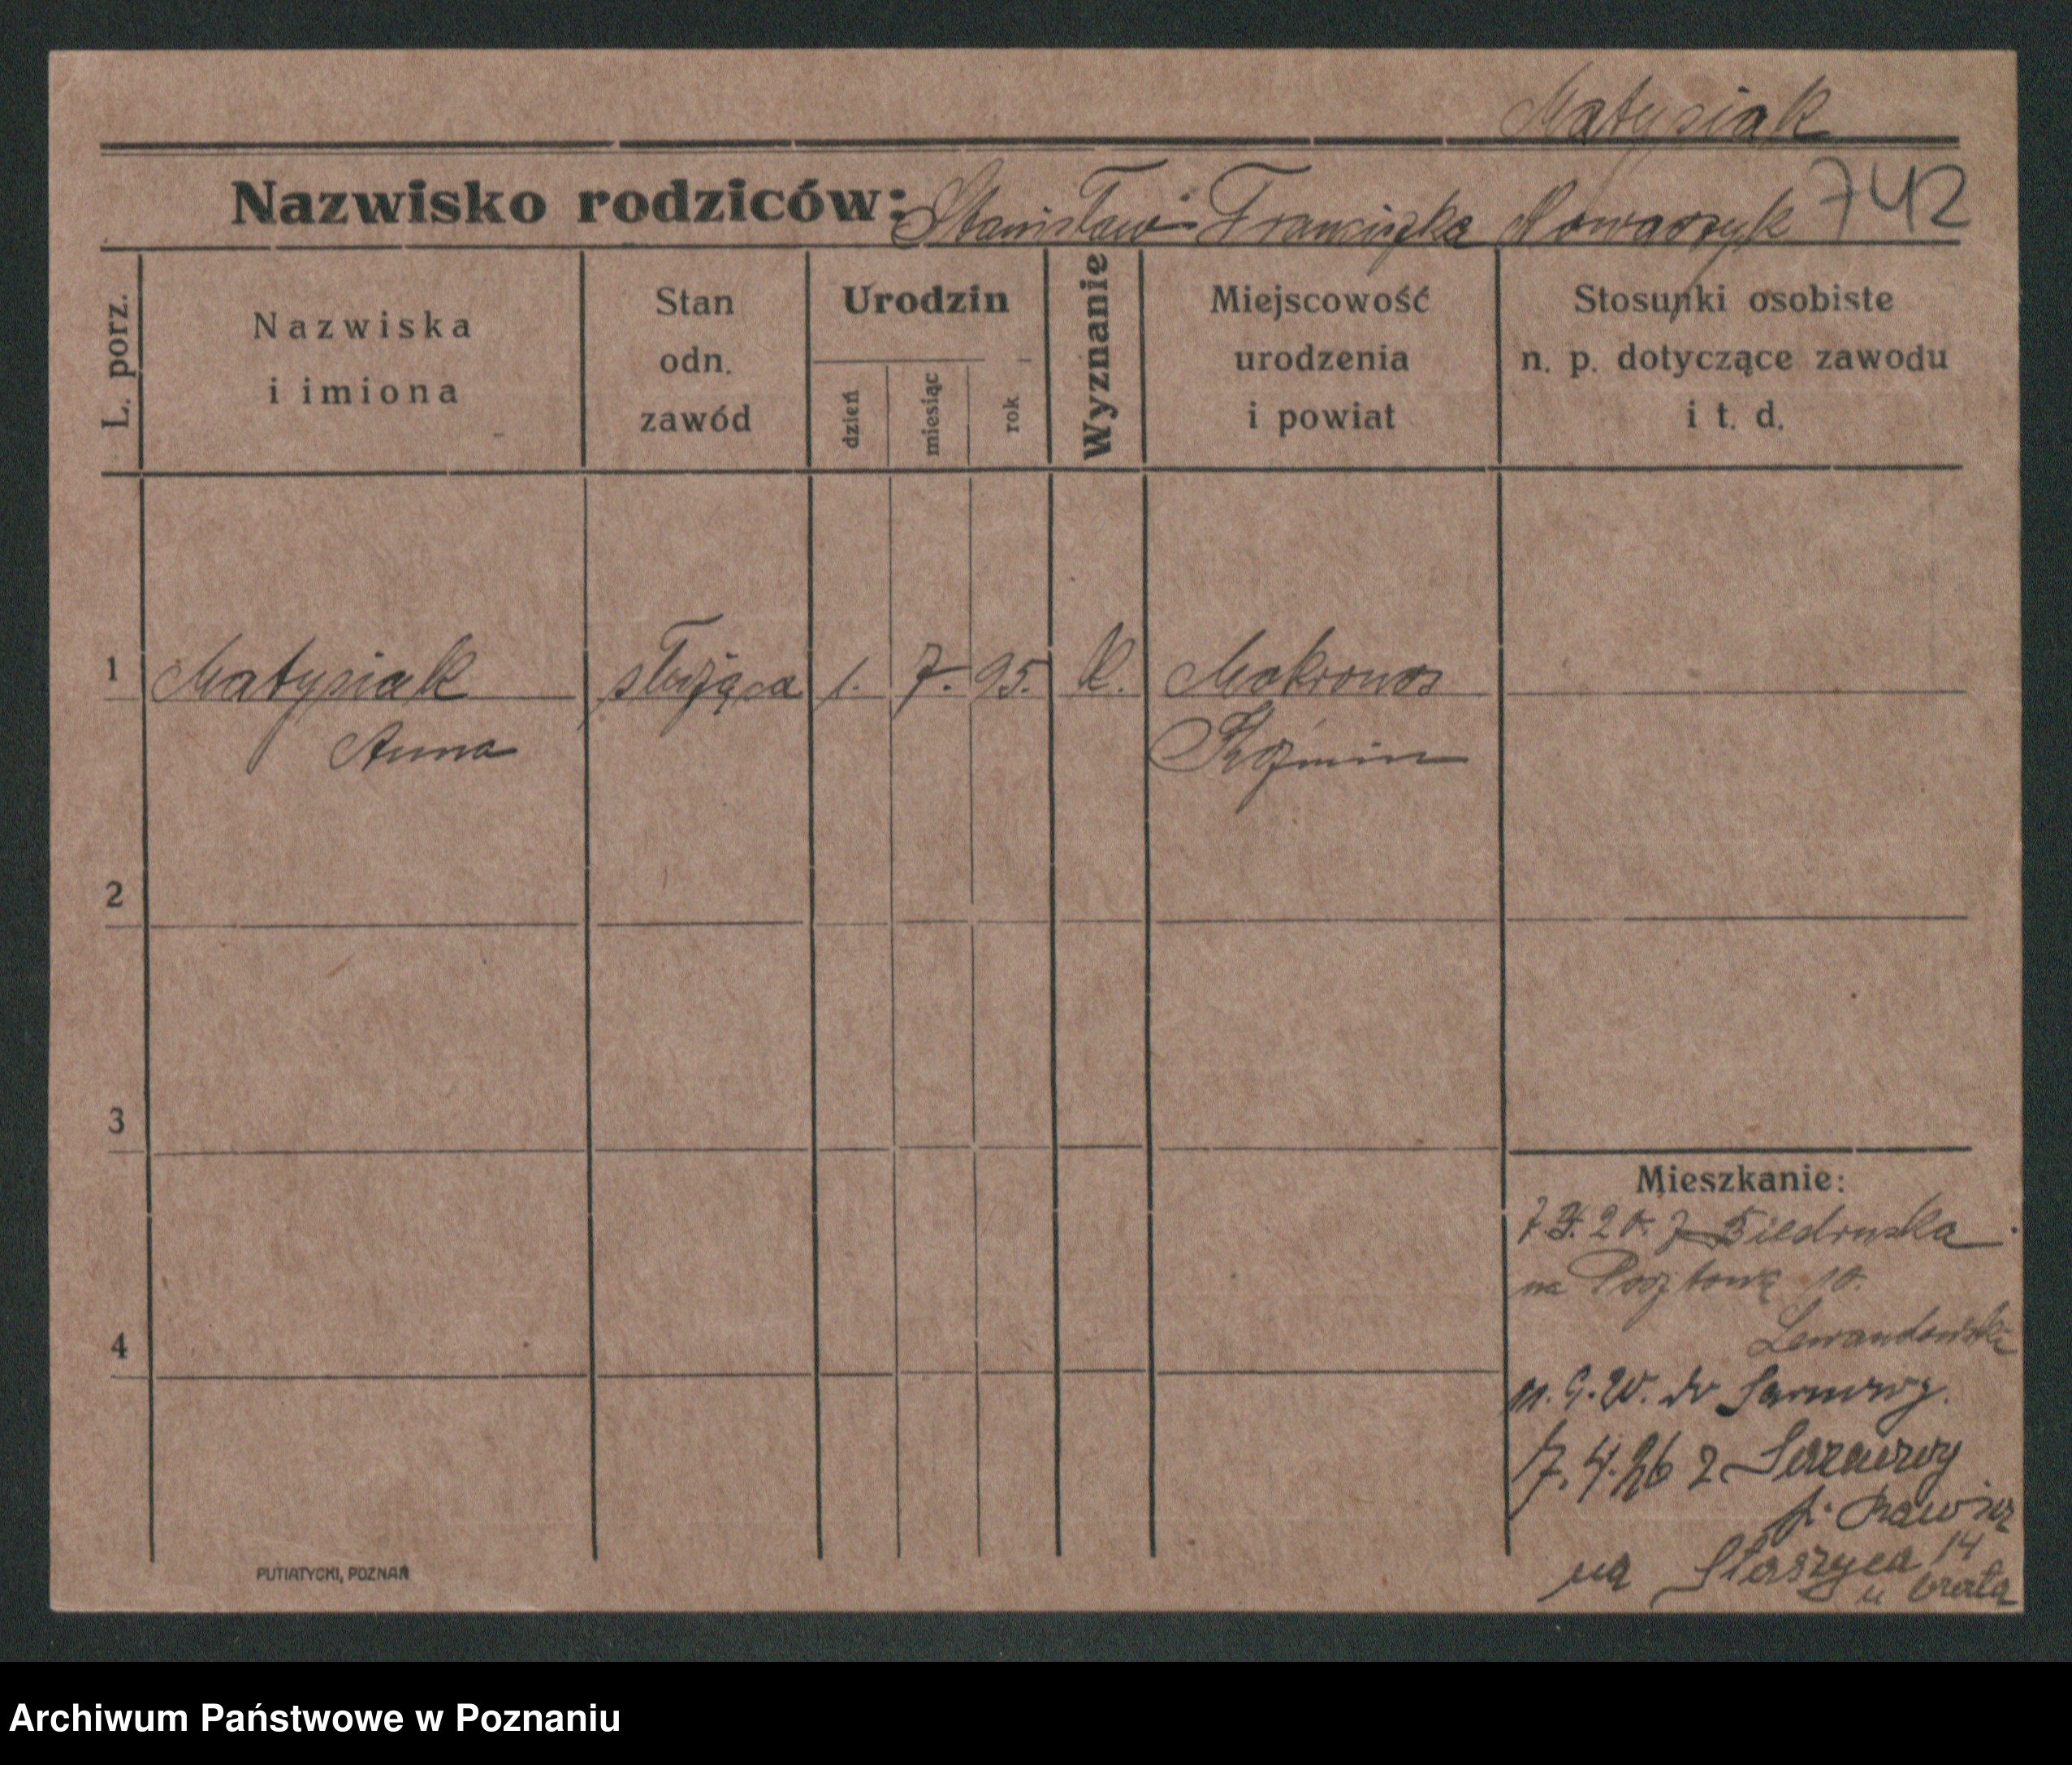 Matysiak
Nazwisko rodziców: Stanisław - Franciszka Nowaczyk 742
L. porz.
Nazwiska
i imiona
Stan
odn.
zawód
Urodzin
dzień
miesiąc
rok
Wyznanie
Miejscowość
urodzenia
i powiat
Stosunki osobiste
n. p. dotyczące zawodu
i t. d.
1 Matysiak służąca 1. 7. 95. k. Mokronos
Anna Koźmin
2
3
4
Mieszkanie:
20. z Biedruska
na Pocztową 10.
Lewandowski
9. 20. do Sarnowy.
7. 4. 26 z Sarnowy
p. Rawicz
na Staszyca 14
u brata
PUTIATYCKI, POZNAŃ
Archiwum Państwowe w Poznaniu